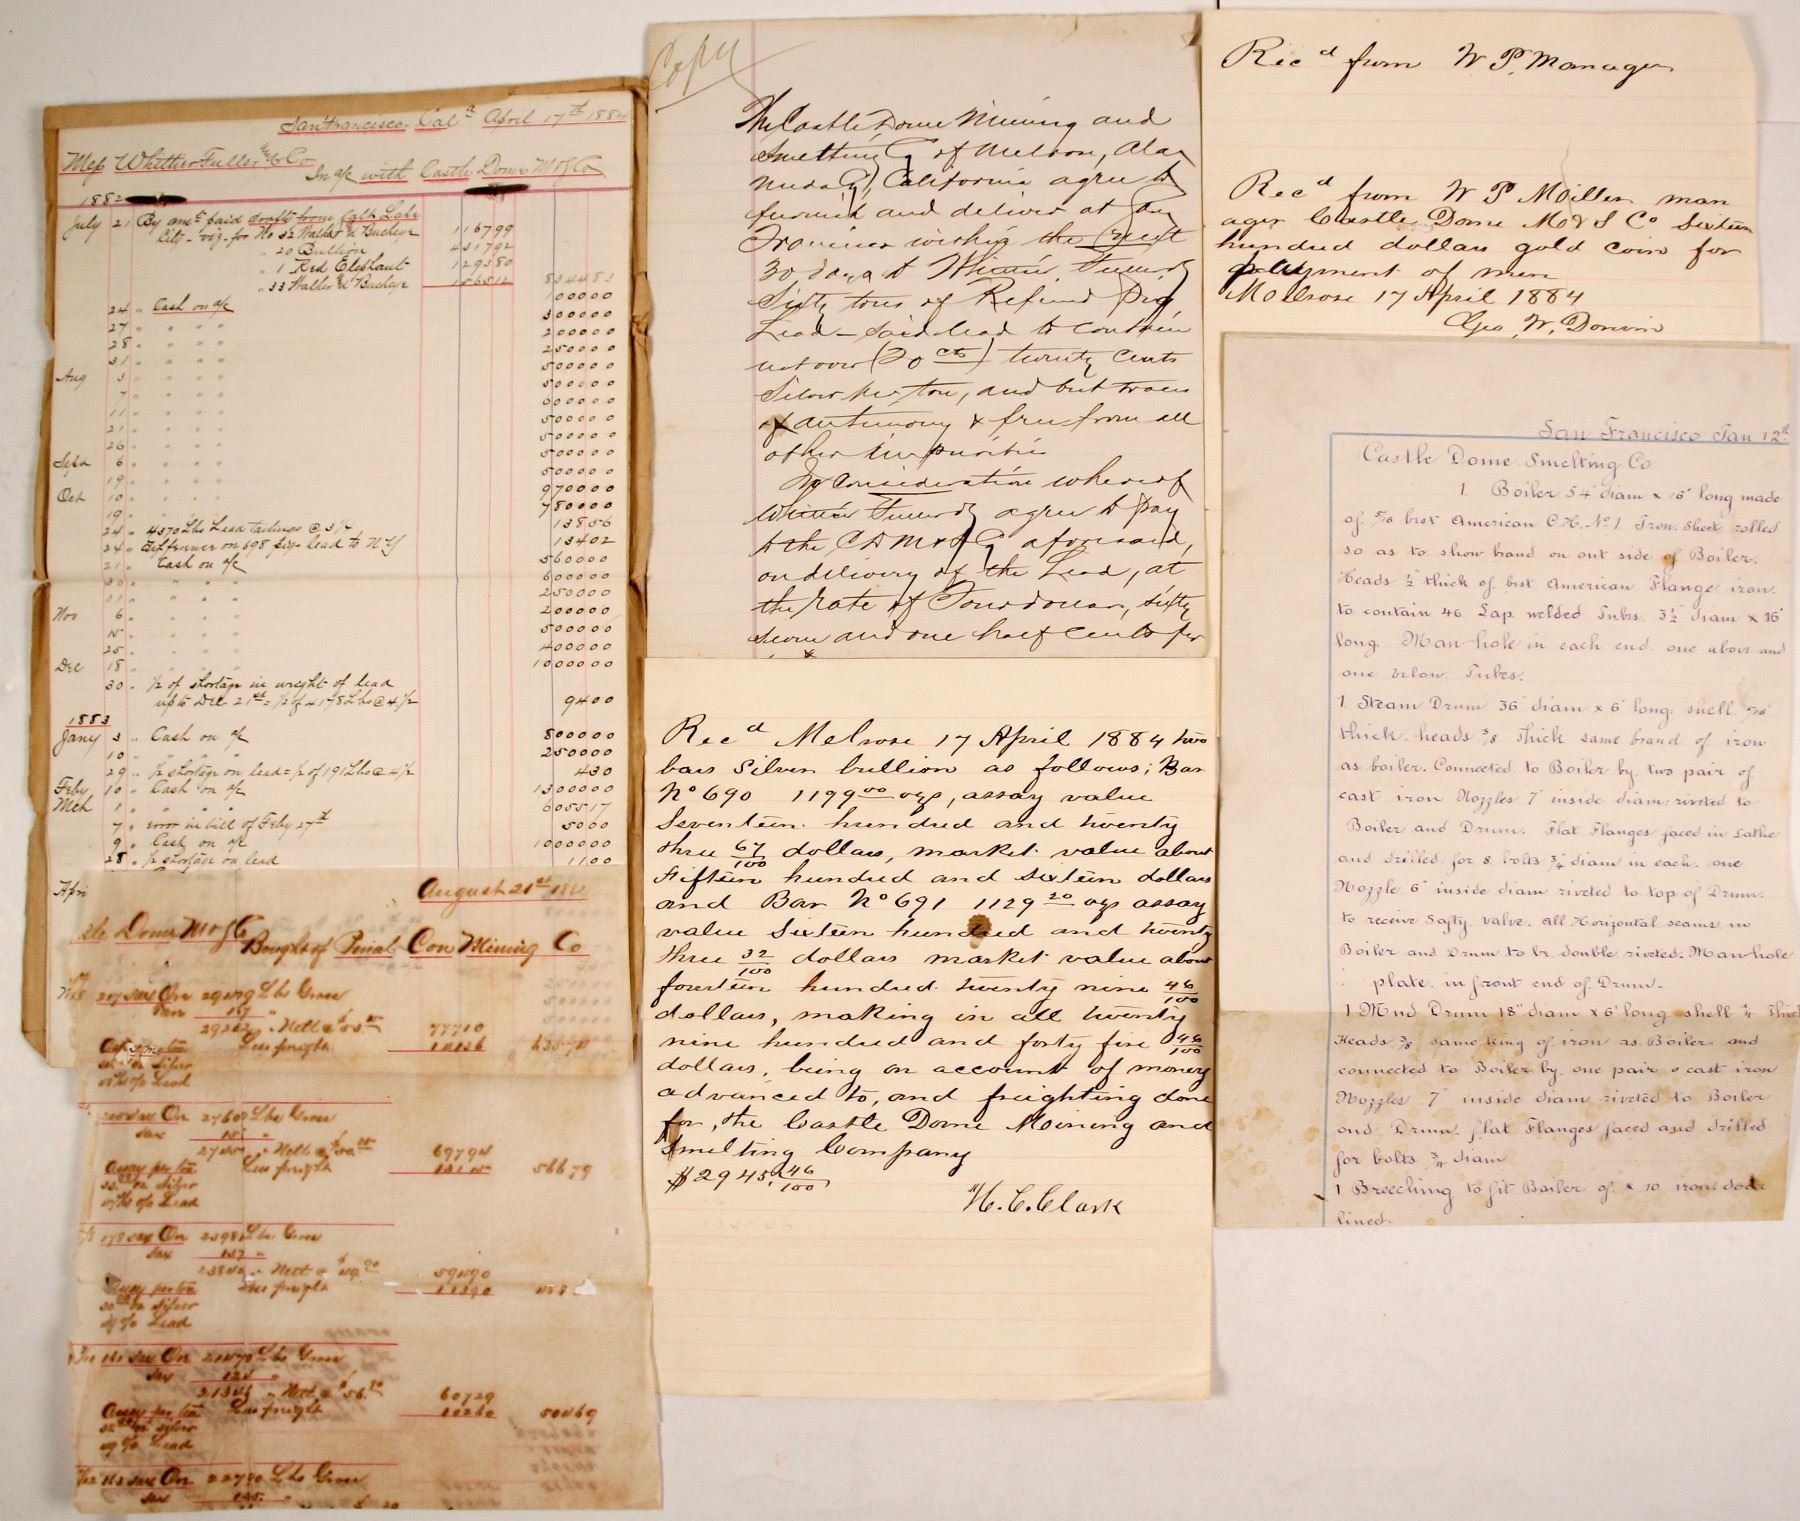 San Francisco, Cal. April 17th 1884
Mess Whittier Fuller & Co
In a/c with Castle Dome M & S Co
1882
July 21 By amt paid drafts from Salt Lake
City - viz - for No 32 Walker & Bucheye 116799
" 20 Bullion 431792
" 1 Red Elephant 129380
" 33 Walker & Bucheye 156512 834483
24 " Cash on a/c 100000
27 " " " " 300000
28 " " " " 200000
31 " " " " 250000
Aug 3 " " " " 500000
7 " " " "
11 " " " " 500000
21 " " " " 500000
26 " " " " 500000
Sept 6 " " " " 500000
19 " " " "
Oct 10 " " " " 970000
19 " " " " 780000
24 " 4370 Lbs Lead Tailings @ 13856
24 " Difference on 698 pigs lead to NY 13402
21 " Cash on a/c 560000
30 " " " " 600000
31 " " " " 250000
Nov 6 " 200000
15 " 500000
25 " 400000
Dec 18 " 1000000
30 " 1/2 of shortage in weight of lead
up to Dec 21st = 1/2 of 4178 Lbs @ 4 1/2 9400
1883
Jany 3 " Cash on a/c 800000
10 " " " " 250000
29 " 1/2 shortage on lead = 1/2 of 191 Lbs @ 4 1/2 430
Feby 10 " Cash on a/c 1300000
Mch 1 " " " " 605517
7 " error in bill of Feby 27th 5000
9 " Cash on a/c 1000000
28 " 1/2 shortage on lead 1100
Apri
August 21st 1882
Dome M & S Co
Bought of Penial Con Mining Co
207 sax Ore 29409 Lbs Gross
sax 157 "
29252 " Nett @ 77710
Less freight
Lead
200 sax Ore 27602 Lbs Gross
sax 151 "
" Nett @ 69794
Assay per ton Less freight 56679
oz silver
% Lead
178 sax Ore 23981 Lbs Gross
sax 137 "
" Nett @ 59490
Assay per ton Less freight 11390
30 oz silver
49 % Lead
161 sax Ore 21470 Lbs Gross
sax 124 "
21346 " Nett @ $56. 60729
Assay per ton Less freight 10260 50469
oz silver
49 % Lead
sax Ore 22790 Lbs Gross
sax
Copy
The Castle Dome Mining and
Smelting Co of Melrose, Ala
meda Co, California agree to
furnish and deliver at San
Francisco within the next
30 days to Whittier Fuller & Co
Sixty tons of Refined Pig
Lead - Said lead to contain
not over (20 cts) twenty cents
Silver per ton, and but traces
of antimony & free from all
other impurities
In consideration whereof
Whittier Fuller & Co agree to pay
to the C D M & S Co aforesaid,
on delivery of the Lead, at
the rate of Four dollars, sixty
seven and one half cents per
Rec'd from W. P. Manager
Rec'd from W P Miller man
ager Castle Dome M & S Co Sixteen
hundred dollars gold coin for
payment of men
Melrose 17 April 1884
Geo. W.
Rec'd Melrose 17 April 1884 two
bars silver bullion as follows; Bar
No 690 1199 00 ozs, assay value
Seventeen hundred and twenty
three 67/100 dollars, market value about
Fifteen hundred and sixteen dollars
and Bar No 691 1129 20 ozs assay
value sixteen hundred and twenty
three 32/100 dollars market value about
fourteen hundred twenty nine 46/100
dollars, making in all twenty
nine hundred and forty five 46/100
dollars, being on account of money
advanced to, and freighting done
for, the Castle Dome Mining and
Smelting Company
$2945, 46/100
H. C. Clark
San Francisco Jan 12th
Castle Dome Smelting Co
1. Boiler 54" diam x 16' long made
of 5/16 best American C.H. No 1 Iron. Sheet rolled
so as to show brand on out side of Boiler.
Heads 1/2" thick of best American Flange iron.
to contain 46 Lap welded Tubes. 3 1/2" diam x 16'
long. Man-hole in each end. one above and
one below Tubes.
1 Steam Drum 36" diam x 6' long: shell 5/16"
thick. heads 3/8 thick same brand of iron
as boiler. Connected to Boiler by two pair of
cast iron Nozzles 7" inside diam: riveted to
Boiler and Drum. Flat Flanges faced in Lathe
and drilled for 8 bolts 3/4" diam in each. one
Nozzle 6" inside diam riveted to top of Drum.
to receive Safty valve. All Horizontal seams in
Boiler and Drum to be double riveted. Man-hole
plate in front end of Drum.
1 Mud Drum 18" diam x 6' long shell 1/4 thick
Heads 3/8 same king of iron as Boiler and
connected to Boiler by one pair o cast iron
Nozzles 7" inside diam riveted to Boiler
and Drum flat Flanges faced and drilled
for bolts 3/4 diam
1 Breeching to fit Boiler of # 10 iron
lined.